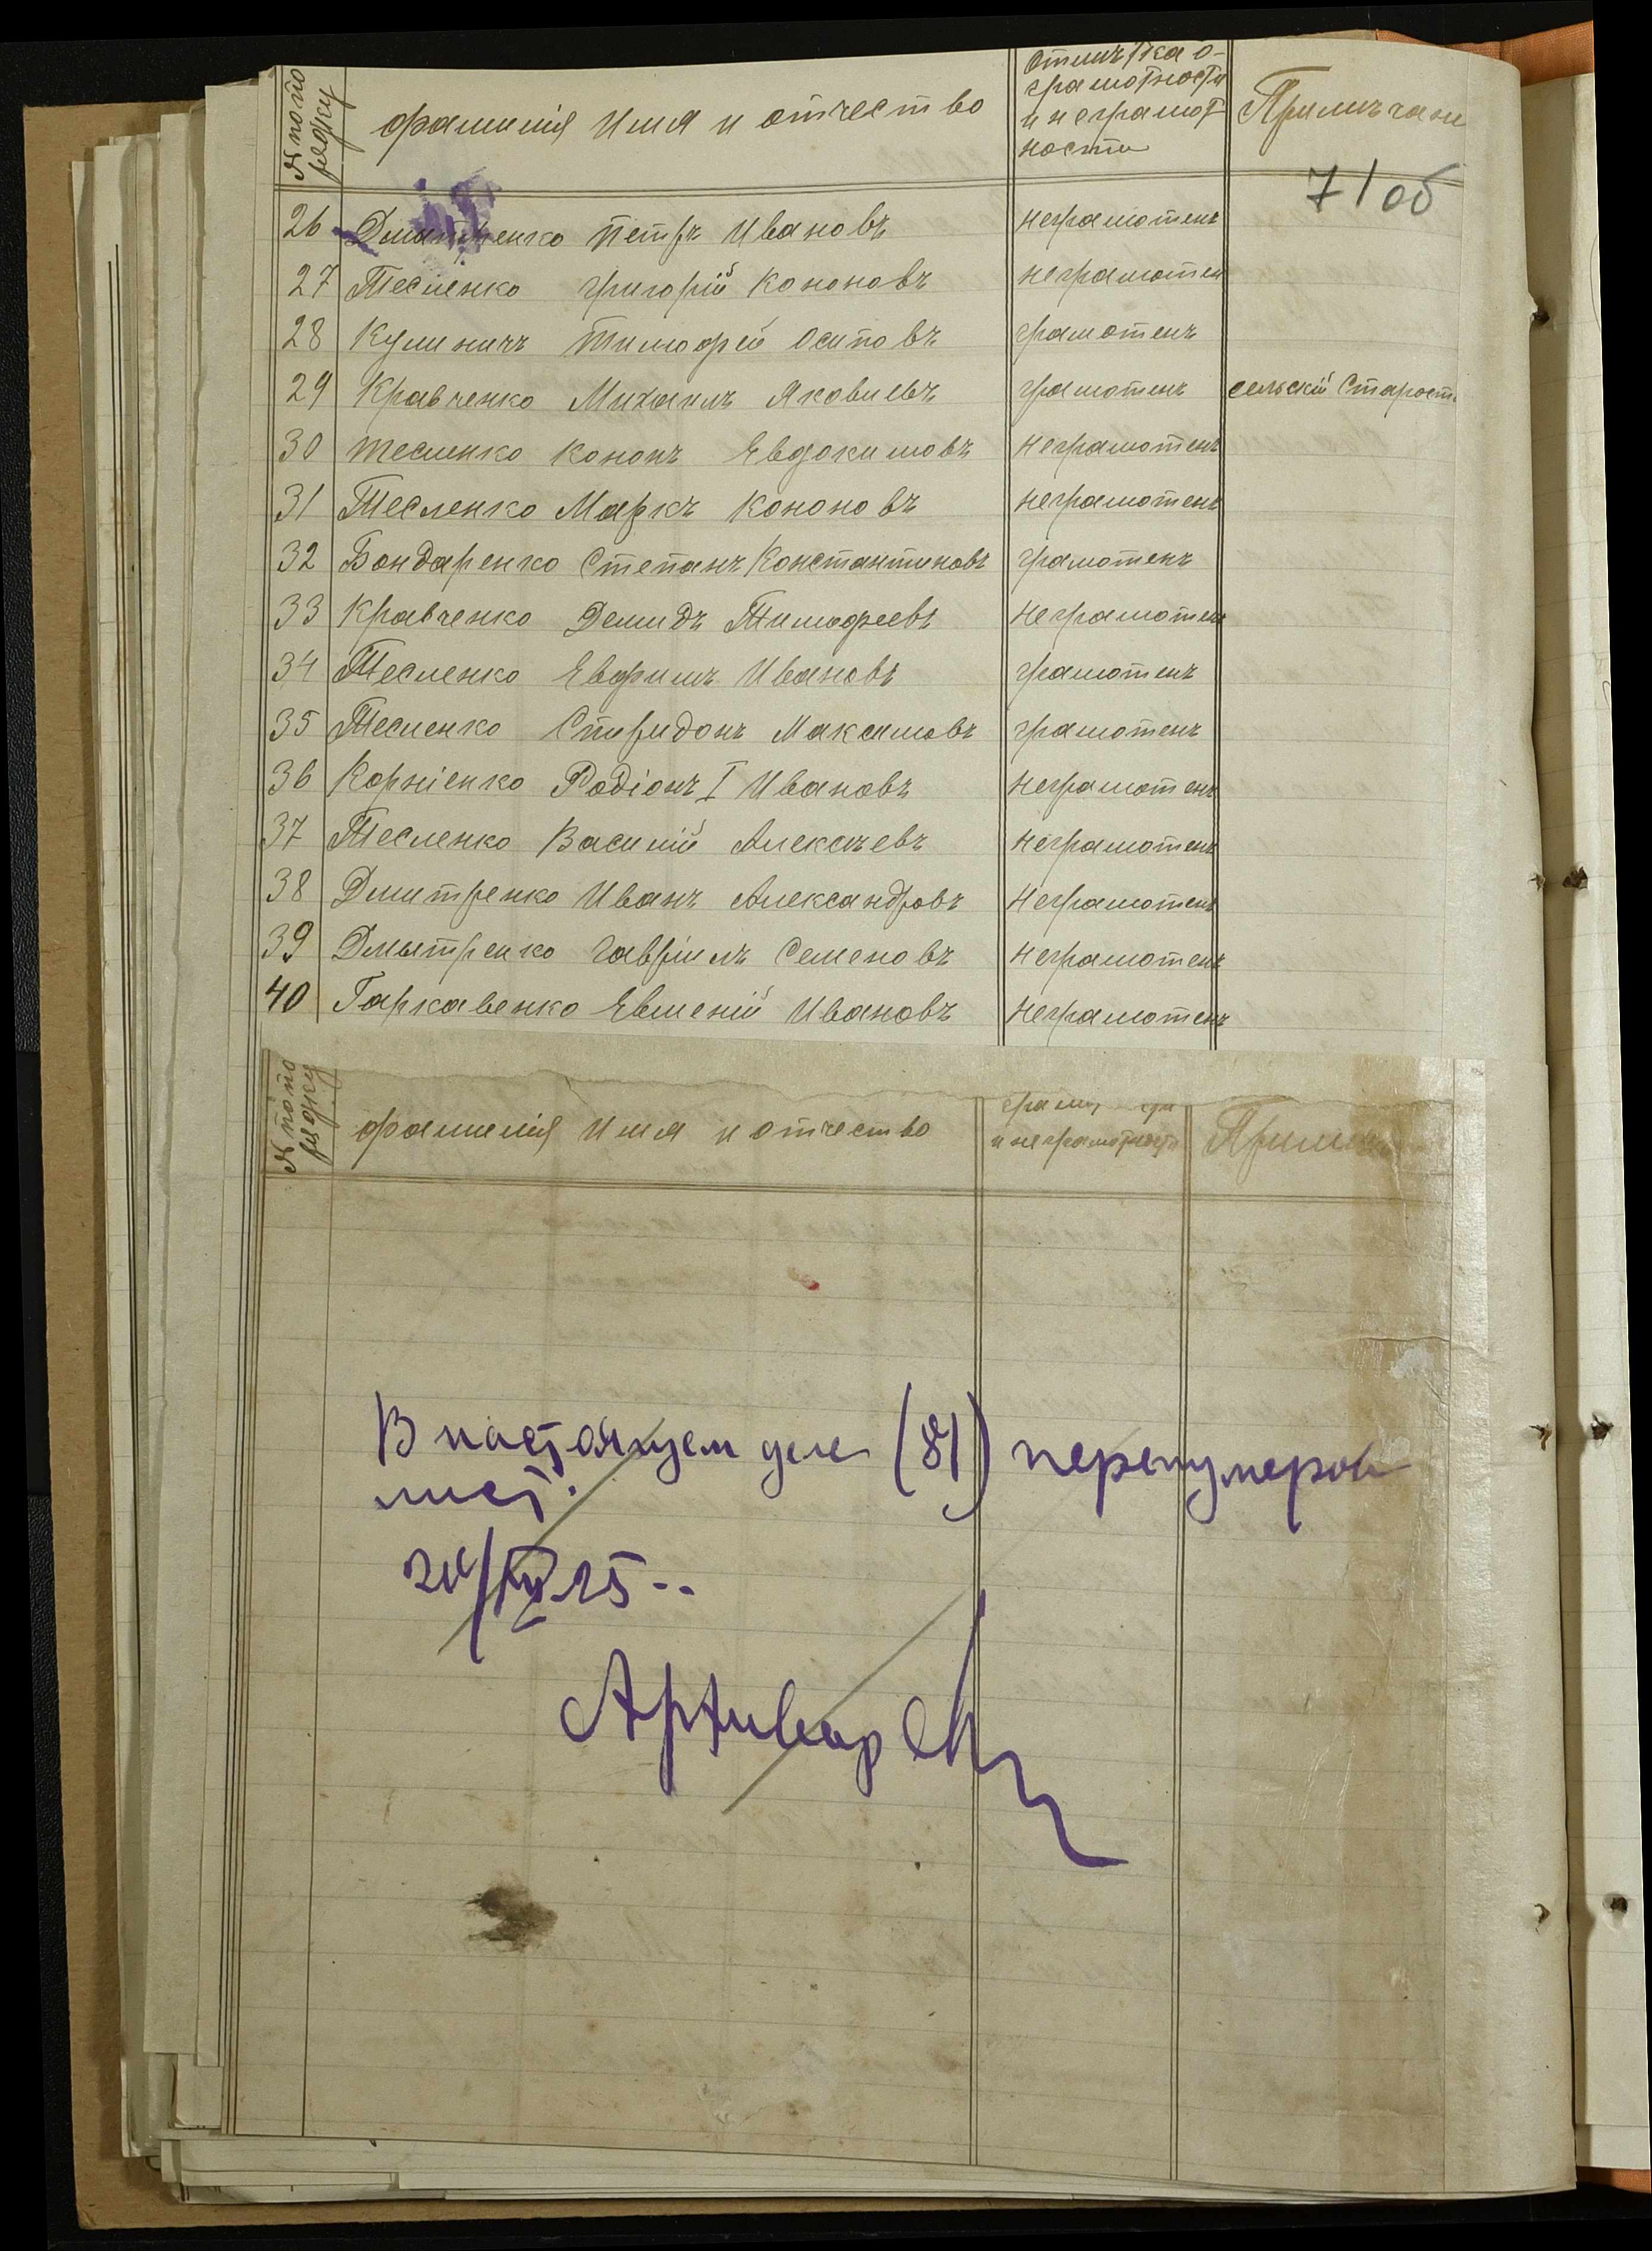 № по по
рядку
фамилія имя и отчество
Отмѣтка о
грамотности
и неграмот
ности
Примѣчани
71 об
26 Дмитренко Петръ Ивановъ неграмотенъ
27 Тесленко Григорій Кононовъ неграмотен
28 Кулиничъ Тимофей Осиповъ грамотенъ
29 Кравченко Михаилъ Яковлевъ грамотенъ сельскій Старост
30 Тесленко Кононъ Евдокимовъ неграмотенъ
31 Тесленко Маркъ Кононовъ неграмотенъ
32 Бондаренко Степанъ Константиновъ грамотенъ
33 Кравченко Демидъ Тимофеевъ неграмотен
34 Тесленко Евфимъ Ивановъ грамотенъ
35 Тесленко Спиридонъ Максимовъ грамотенъ
36 Корніенко Родіонъ I Ивановъ неграмотенъ
37 Тесленко Василій Алексѣевъ неграмотенъ
38 Дмитренко Иванъ Александровъ неграмотенъ
39 Дмытренко Гавріилъ Семеновъ неграмотенъ
40 Гаркавенко Евменій Ивановъ неграмотенъ
№ по по
рядку
фамилія имя и отчество
и неграмотности
В настоящем деле (81) перенумеров
лист.
Архивар